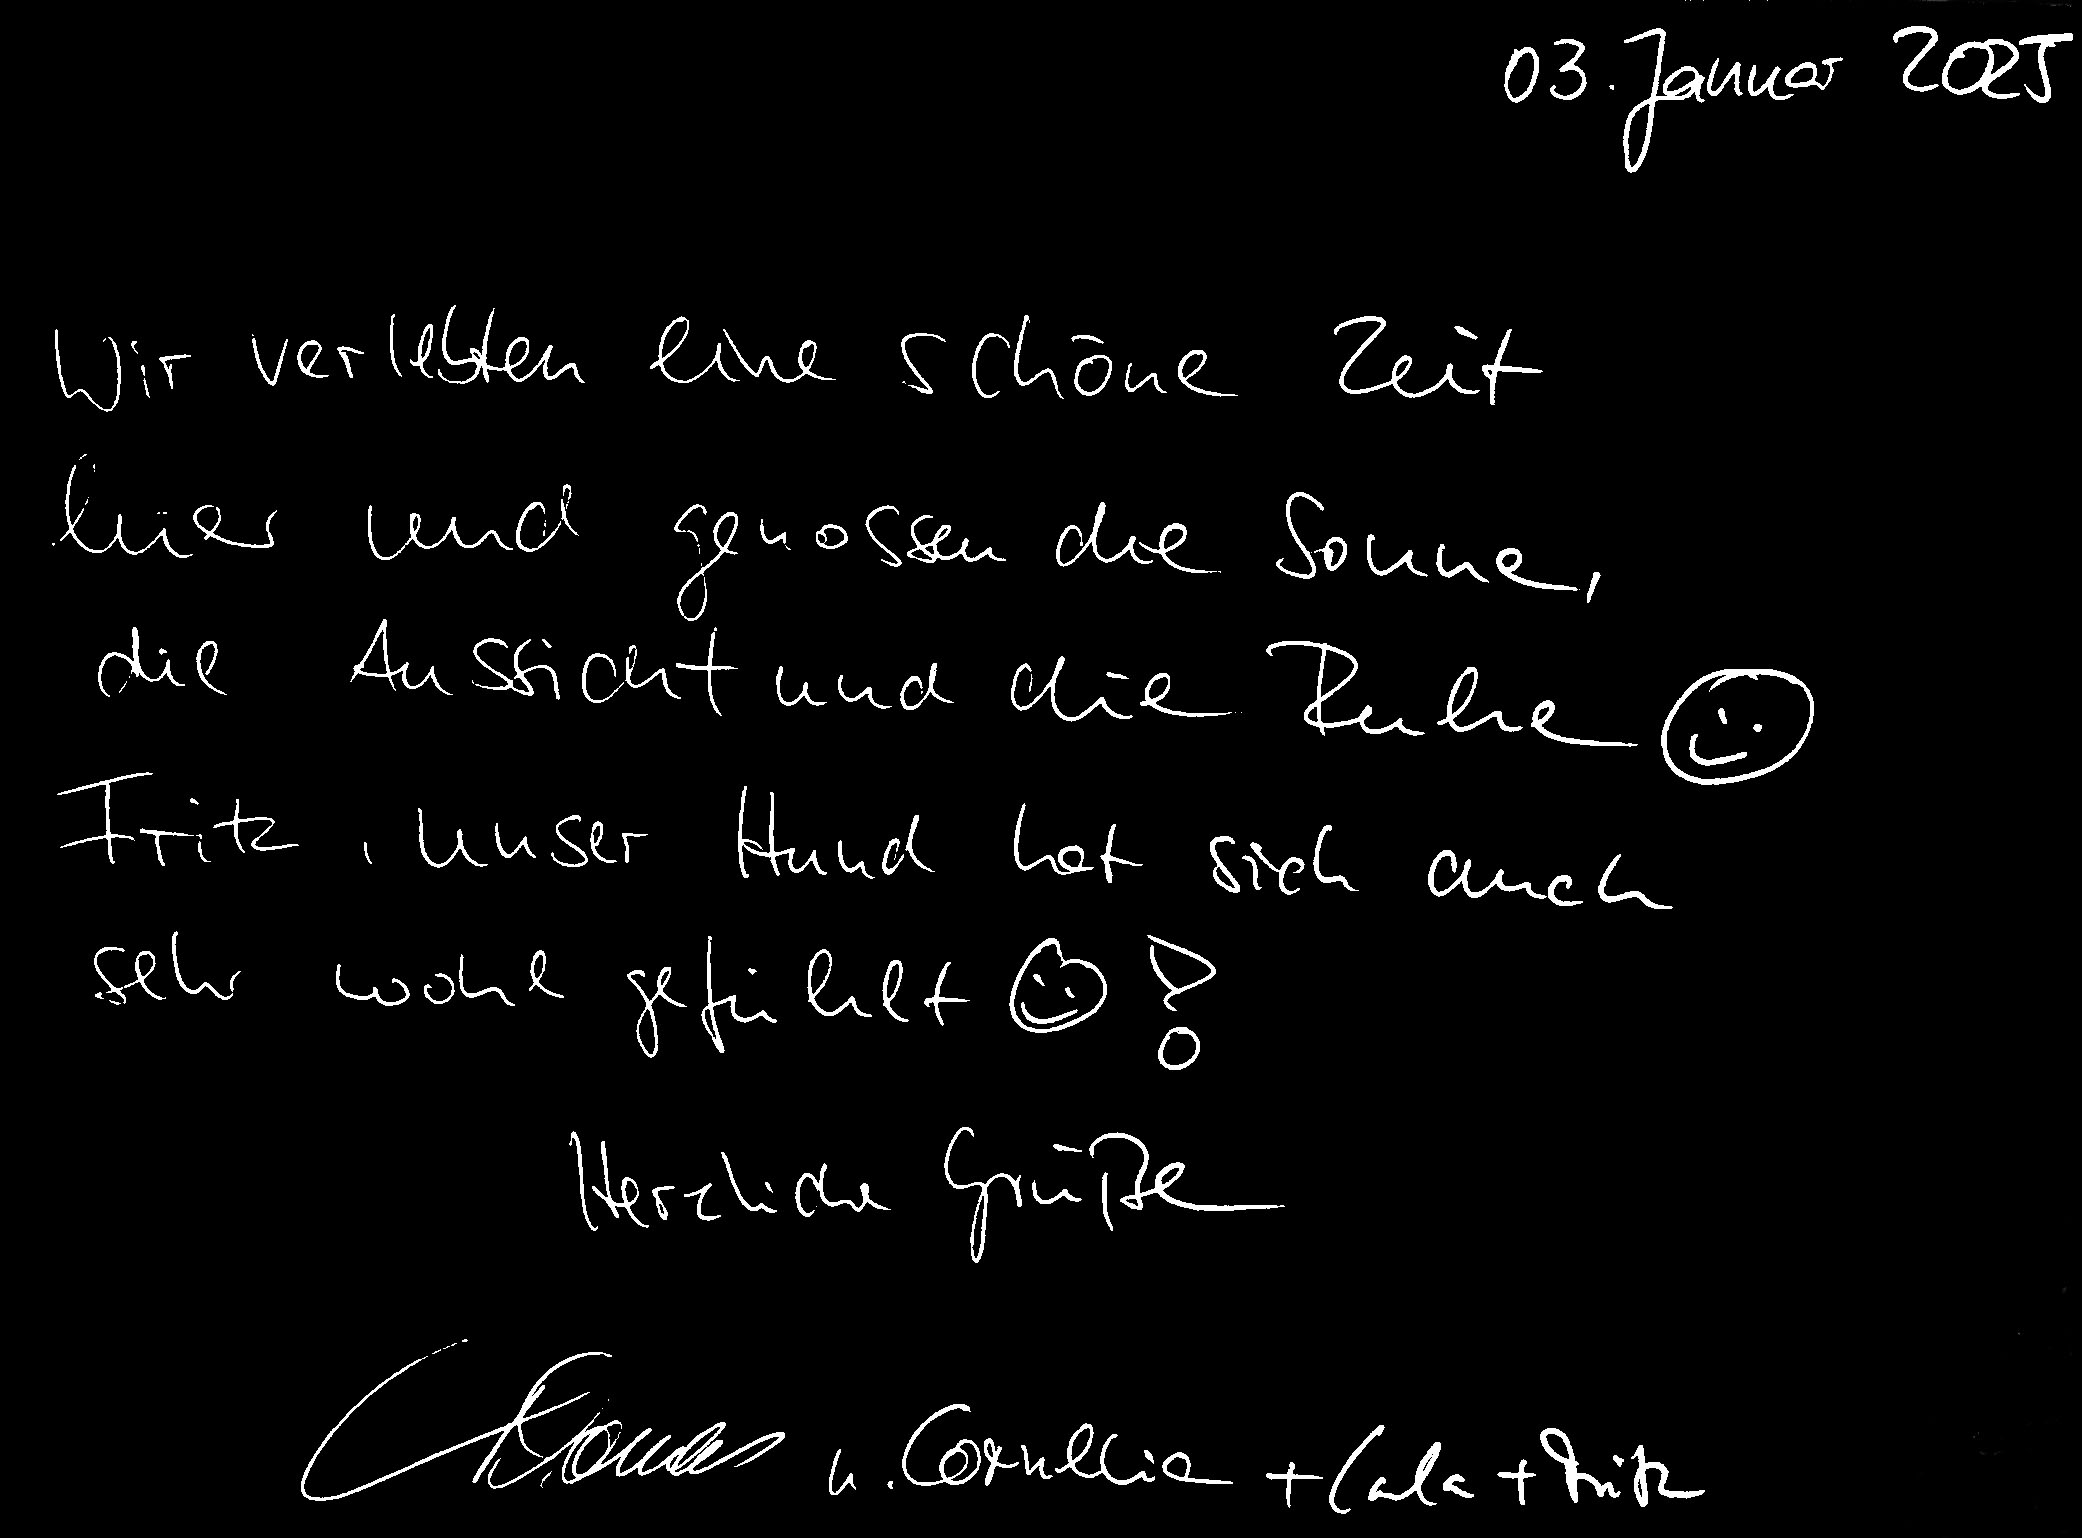 03. Januar 2025
Wir verlebten eine schöne Zeit
hier und genossen die Sonne,
die Aussicht und die Ruhe
Fritz, unser Hund hat sich auch
sehr wohl gefühlt !
Herzliche Grüße
Thomas u. Cornelia + Cala + Fritz